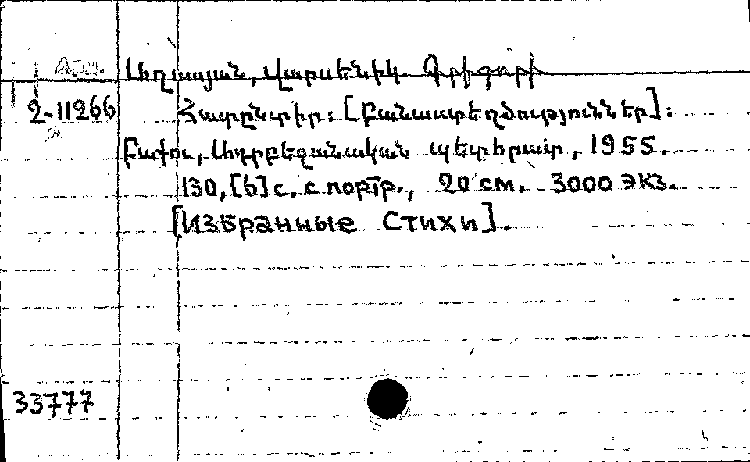 Աղասյան, Արսենիկ Գրիգորի
2-11266 Հատընտիր: [Բանաստեղծություններ]:
Բաքու, Ադրբեջանական պետհրատ, 1955.
130, [6] с. с портр., 20 см. 3000 экз.
[Избранные стихи].
33777